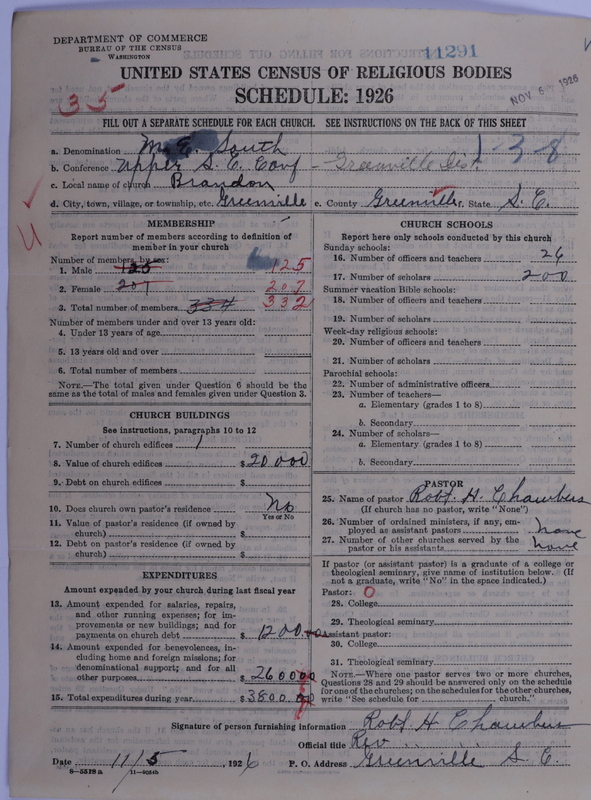 DEPARTMENT OF COMMERCE
BUREAU OF THE CENSUS
WASHINGTON
11291
NOV 6 1926
UNITED STATES CENSUS OF RELIGIOUS BODIES
SCHEDULE: 1926
35
FILL OUT A SEPARATE SCHEDULE FOR EACH CHURCH. SEE INSTRUCTIONS ON THE BACK OF THIS SHEET
a. Denomination M. E. South 1-3-8
b. Conference Upper S. C. Conf - Greenville Dist.
c. Local name of church Brandon
d. City, town, village, or township, etc. Greenville e. County Greenville f. State S. C.
MEMBERSHIP
Report number of members according to definition of
member in your church
Number of members, by sex:
1. Male 125 125
2. Female 207 207
3. Total number of members 334 332
Number of members under and over 13 years old:
4. Under 13 years of age
5. 13 years old and over
6. Total number of members
NOTE.—The total given under Question 6 should be the
same as the total of males and females given under Question 3.
CHURCH BUILDINGS
See instructions, paragraphs 10 to 12
7. Number of church edifices 1
8. Value of church edifices $20000
9. Debt on church edifices $
10. Does church own pastor's residence No
Yes or No
11. Value of pastor's residence (if owned by
church) $
12. Debt on pastor's residence (if owned by
church) $
EXPENDITURES
Amount expended by your church during last fiscal year
13. Amount expended for salaries, repairs,
and other running expenses; for im-
provements or new buildings; and for
payments on church debt $1200
14. Amount expended for benevolences, in-
cluding home and foreign missions; for
denominational support; and for all
other purposes $260000
15. Total expenditures during year $3800.00
CHURCH SCHOOLS
Report here only schools conducted by this church
Sunday schools:
16. Number of officers and teachers 26
17. Number of scholars 200
Summer vacation Bible schools:
18. Number of officers and teachers
19. Number of scholars
Week-day religious schools:
20. Number of officers and teachers
21. Number of scholars
Parochial schools:
22. Number of administrative officers
23. Number of teachers—
a. Elementary (grades 1 to 8)
b. Secondary
24. Number of scholars—
a. Elementary (grades 1 to 8)
b. Secondary
PASTOR
25. Name of pastor Robt. H. Chambers
(If church has no pastor, write "None")
26. Number of ordained ministers, if any, em-
ployed as assistant pastors none
27. Number of other churches served by the
pastor or his assistants none
If pastor (or assistant pastor) is a graduate of a college or
theological seminary, give name of institution below. (If
not a graduate, write "No" in the space indicated.)
Pastor: O
28. College
29. Theological seminary
Assistant pastor:
30. College
31. Theological seminary
NOTE.—Where one pastor serves two or more churches,
Questions 28 and 29 should be answered only on the schedule
for one of the churches; on the schedules for the other churches,
write "See schedule for church."
Signature of person furnishing information Robt H Chambers
Official title Rev
Date 11/5, 1926 P. O. Address Greenville S. C.
8—5518 a 11—9024b